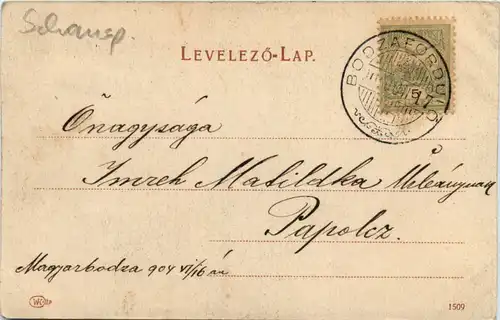 LEVELEZŐ-LAP.
BODZAFORDULÓ
17
Őnagysága
Imreh Matildka Úrleánynak
Papolcz.
Magyarbodza 904 VI/16 án
1509